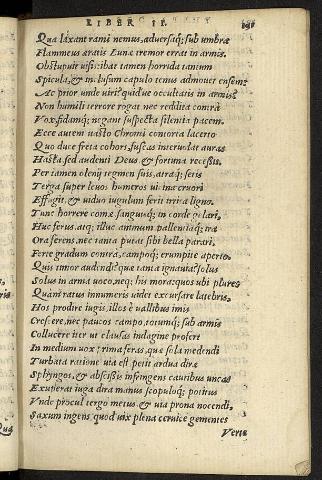 LIBER II.
Qua laxant rami nemus, aduersaq; sub umbra
Flammeus aratis Lunæ tremor errat in armis.
Obstupuit uisis: ibat tamen horrida tantum
Spicula, & inclusum capulo tenus admouet ensem:
Ac prior unde uiri? quidue occultatis in armis?
Non humili terrore rogat nec reddita contra
Vox, fidamq; negant suspecta silentia pacem.
Ecce autem uasto Chromi contorta lacerto
Quo duce freta cohors, fuscas interuolat auras
Hasta, sed audenti Deus & fortuna recessit.
Per tamen olenij tegmen suis, atraq; setis
Terga super leuos humeros uicina cruori
Effugit, & uiduo iugulum ferit irrita ligno.
Tunc horrere comæ sanguinq; in corde gelari,
Huc ferus, atq; illuc animum pallentiaq; ira
Ora ferens, nec tanta putat sibi bella parari,
Ferte gradum contra, campoq; erumpite aperto.
Quis timor audendi? quæ tanta ignauia? solus
Solus in arma uoco, neq; his mora: quos ubi plures
Quàm ratus innumeris uidet excursare latebris,
Hos prodire iugis, illos è uallibus imis
Crescere, nec paucos campo, totumq; sub armis
Collucere iter ut clausas indagine profert
In medium uox prima feras, quæ sola medendi
Turbata ratione uia est petit ardua diræ
Sphyngos, & abscissis infringens cautibus uncas
Exuperat iuga dira manus scopuloq; potitus
Vnde procul tergo metus & uia prona nocendi,
Saxum ingens quod uix plena ceruice gementes
Verte